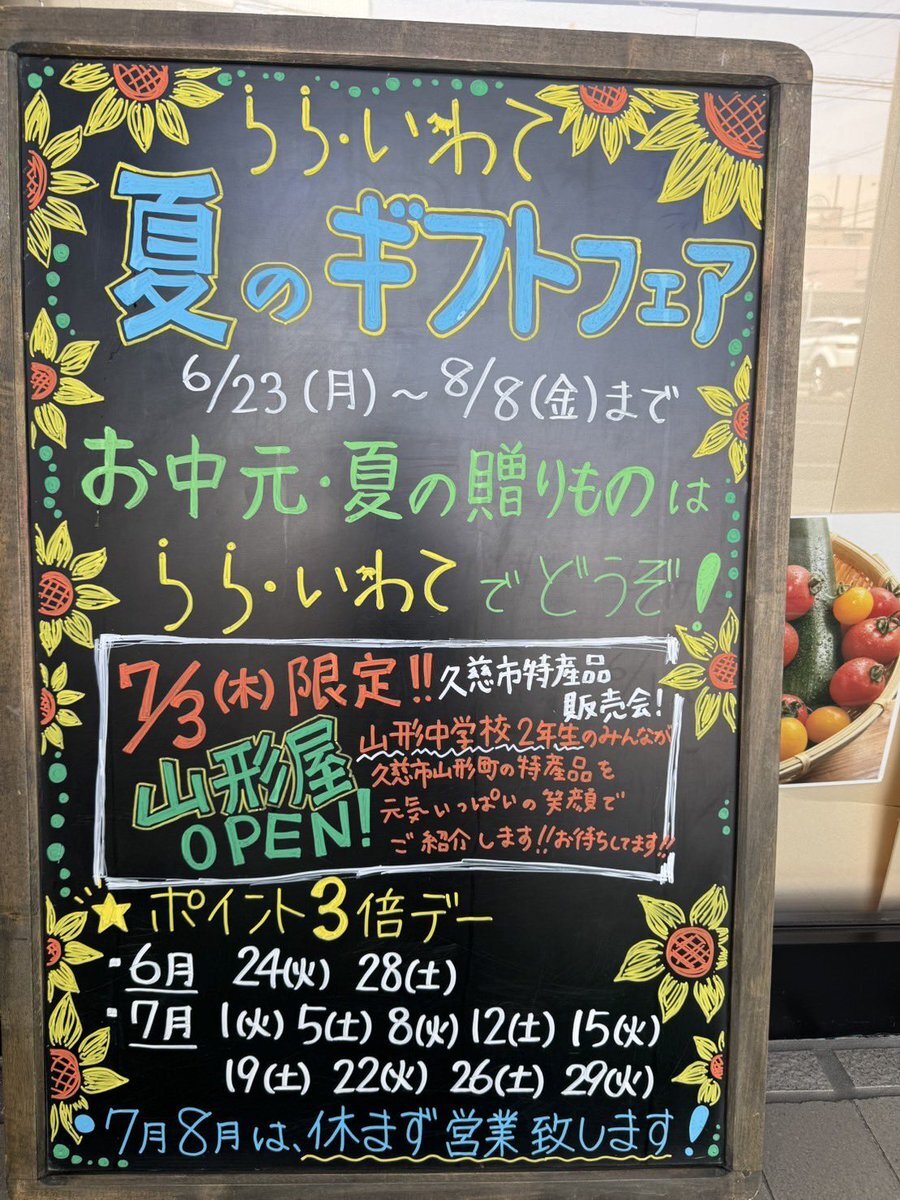 らら・いわて
夏のギフトフェア
6/23(月)～8/8(金)まで
お中元・夏の贈りものは
らら・いわてでどうぞ！
7/3(木)限定!! 久慈市特産品
販売会！
山形屋
OPEN!
山形中学校2年生のみんなが
久慈市山形町の特産品を
元気いっぱいの笑顔で
ご紹介します!!お待ちしてます!!
★ポイント3倍デー
・6月 24(火) 28(土)
・7月 1(火) 5(土) 8(火) 12(土) 15(火)
19(土) 22(火) 26(土) 29(火)
●7月8月は、休まず営業致します！